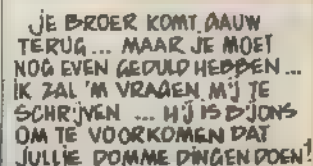 JE BROER KOMT GAUW
TERUG ... MAAR JE MOET
NOG EVEN GEDULD HEBBEN ...
IK ZAL 'M VRAGEN MIJ TE
SCHRIJVEN ... HIJ IS BIJ ONS
OM TE VOORKOMEN DAT
JULLIE DOMME DINGEN DOEN!